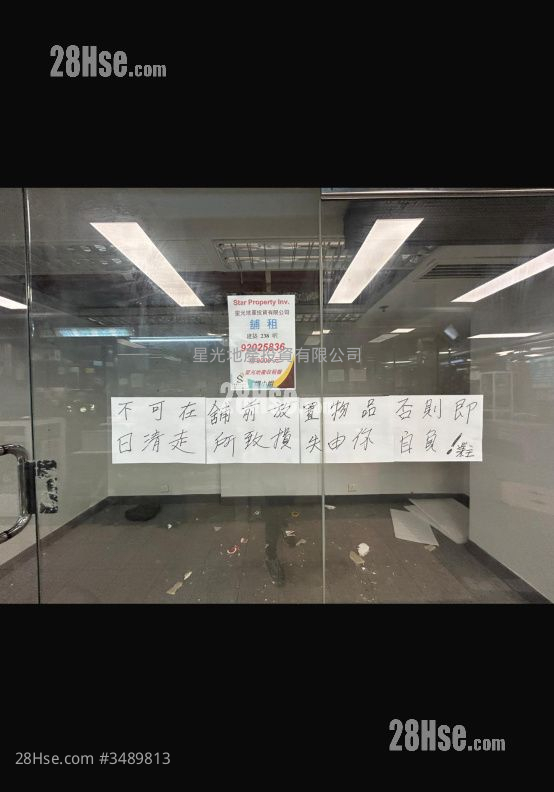 28Hse.com
Star Property Inv.
星光地產投資有限公司
舖 租
建築 238 呎
92025836
星光地產投資有限公司
28Hse.com
不可在舖前放置物品 否則即
日清走 所致損失由你 自負!業主
28Hse.com
28Hse.com #3489813